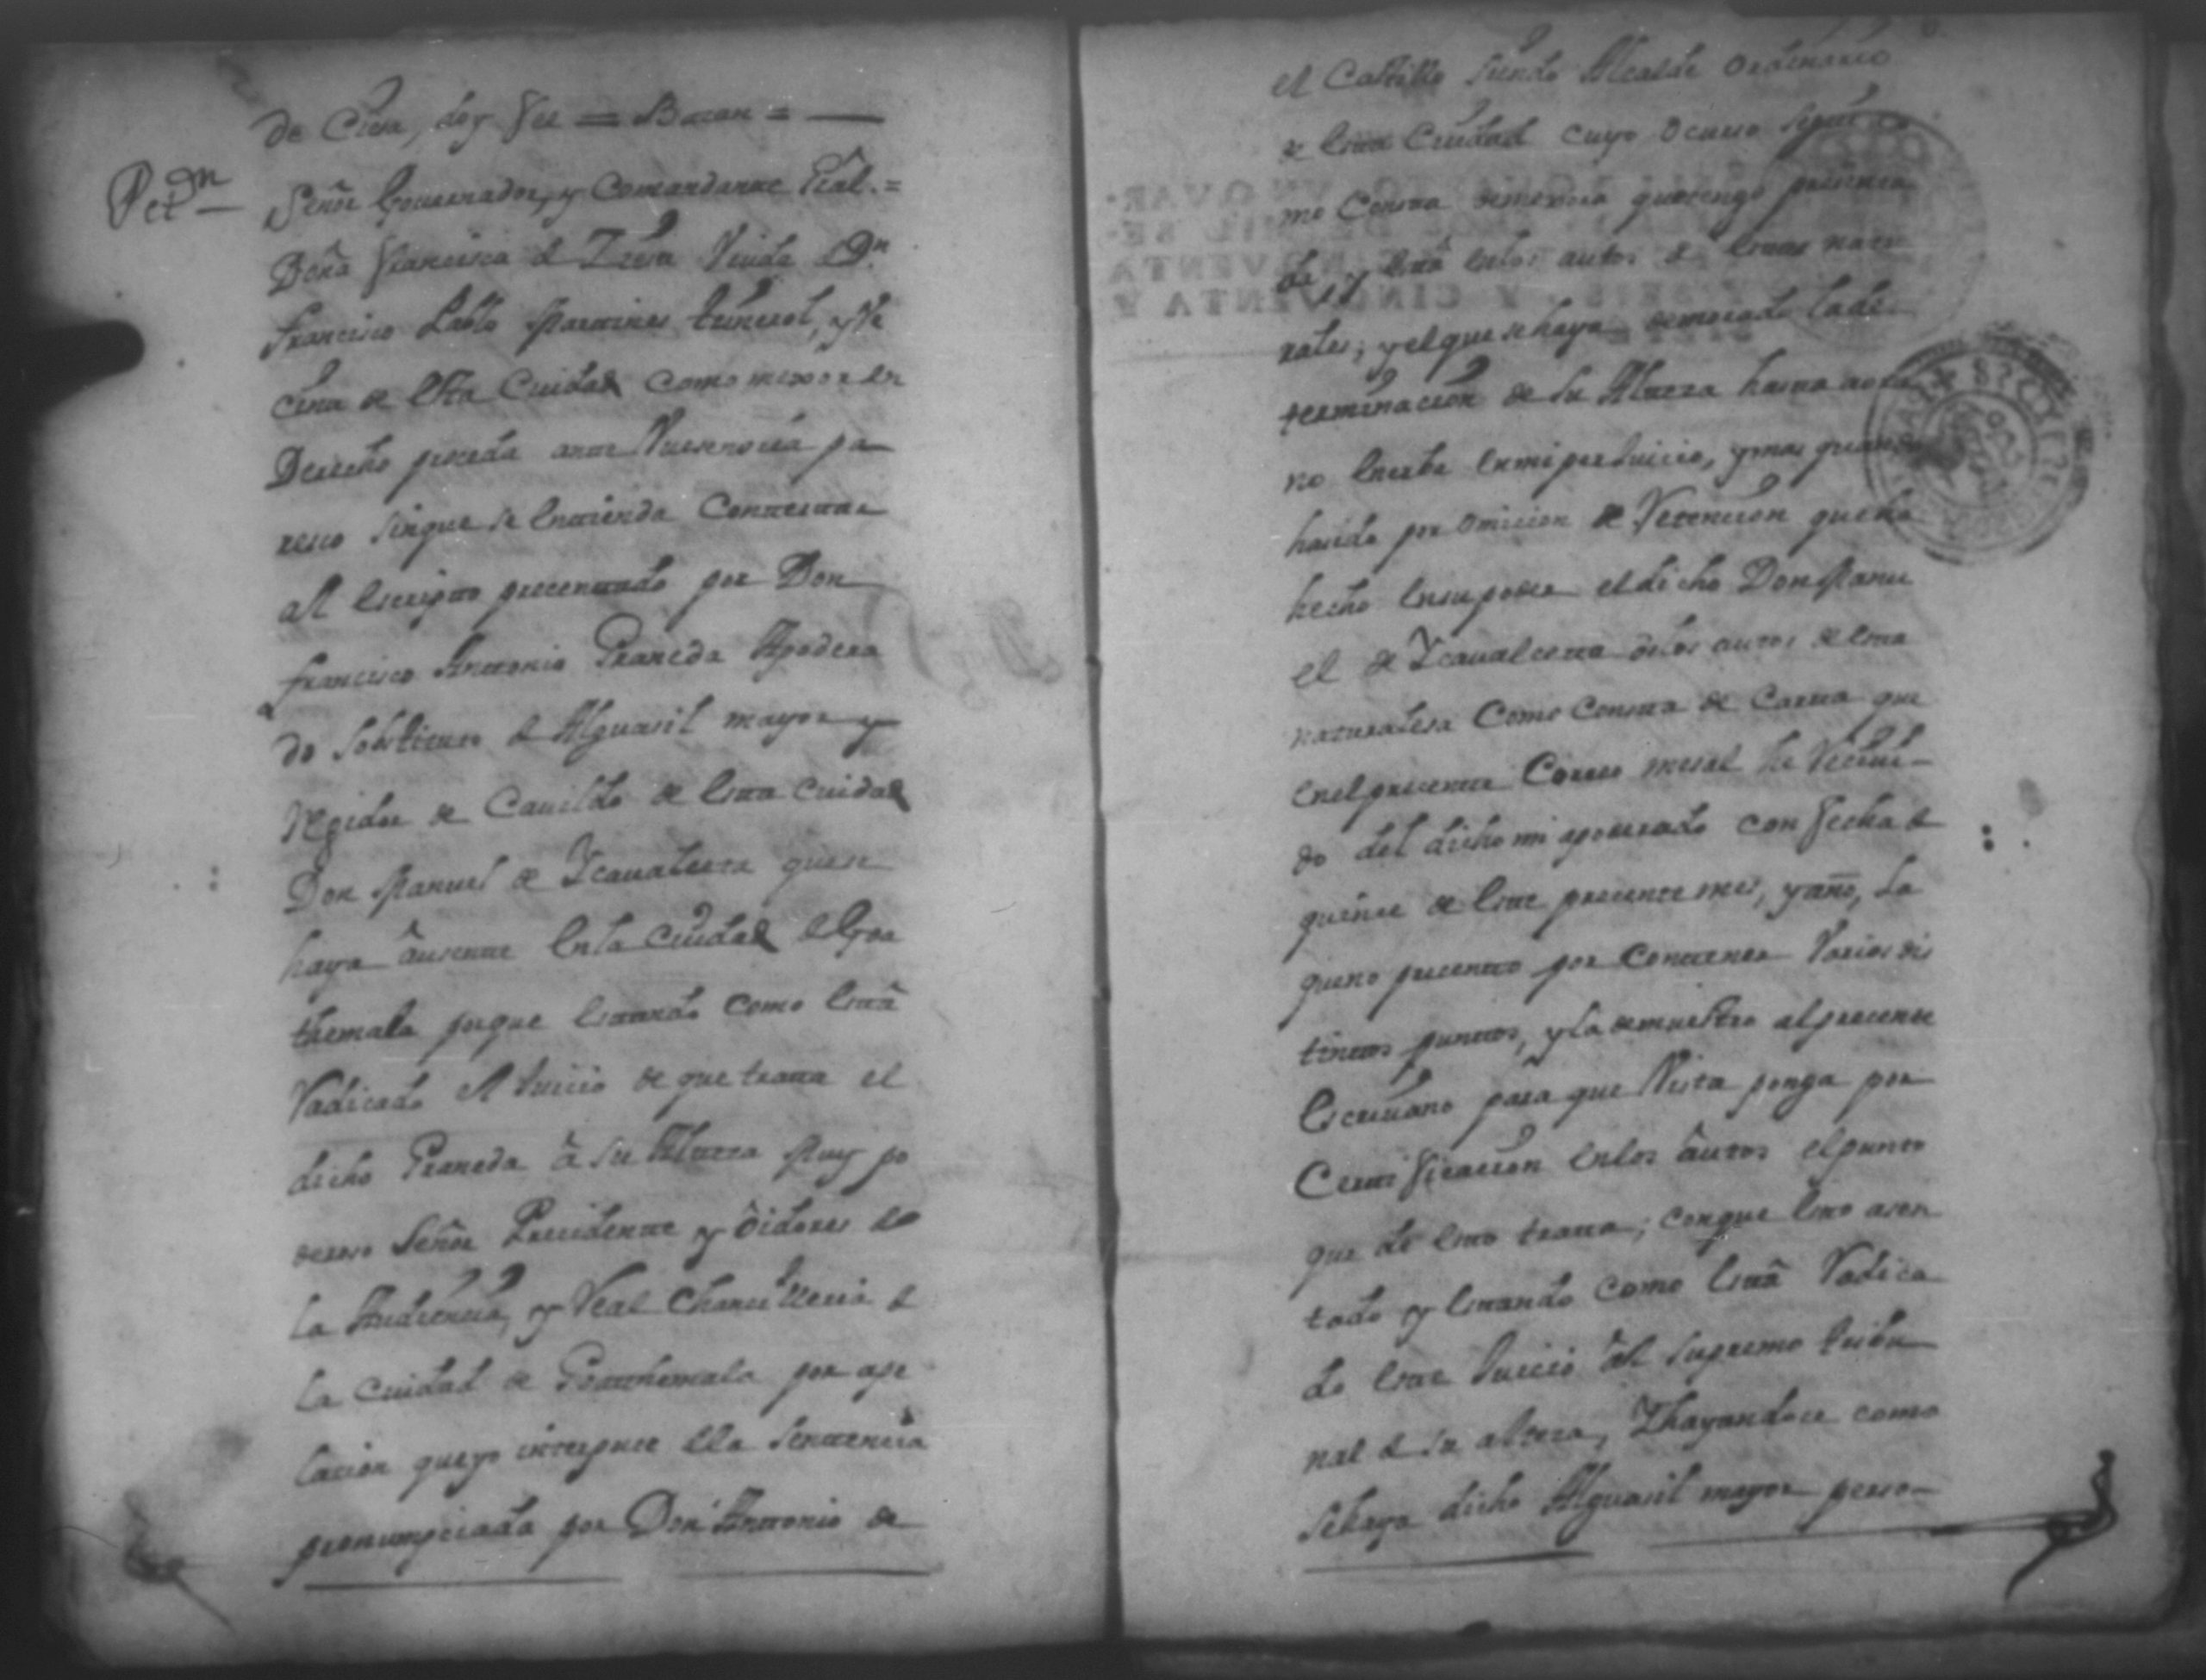 de Cien, doy fee = Bazan = —
Petn
Señor Governador, y Comandante Gral. =
Doña Francisca d Vida Dn
Francisco Pablo Martines thenerol, y Ve
cina de Esta Cuidad como mexor en
Derecho proceda ante Vuesenoria pa
resco sinque se Entienda Contestar
al Escripto precentado por Don
Francisco Anttonio Graneda Apodera
do sobstituto d Alguasil mayor y
Regidor de Cavildo de Esta Cuidad
Don Manuel de Ycavalseta quese
haya âusente En la Ciudad d Goa
themala porque Estando como Está
Radicado el Juicio de que trata el
dicho Graneda â su Alteza Muy po
deroso Señor Precidente y ôidores de
la Audiencia, y Real Chancilleria d
la Cuidad de Goatthemala por ape
lacion que yo interpuce dla Sentencia
pronumpciada por Don Anttonio de
el Castillo siendo Alcalde Ordinario
de Esta Ciudad cuyo Ocurso
mo Consta que tengo precenta
do, y Está Enlos autos de Esta natu
rales; y el que se haya demorado la de
terminacion de su Alteza hasta aora
no Enmiperjuicio, y mas quando
havido por omicion de Retencion que ha
hecho Ensupoder el dicho Don Manu
el de Ycavalseta delos autos de Esta
naturalesa Como Consta de Carta que
Enelprecente Correo mesal he Recivi-
do del dicho mi apoderado con fecha d
quince de Este precente mes, y año, la
queno precento por Contener Varios dis
tintos puntos, y la demuestro al precente
Escrivano para que Vista ponga por
Certificacion Enlos âutos el punto
que de Esto trata; conque Esto asen
tado y Estando como Está Radica
do Este Juicio âl Supremo tribu
nal d su alteza, Yhayandoce como
sehaya dicho Alguasil mayor perso-